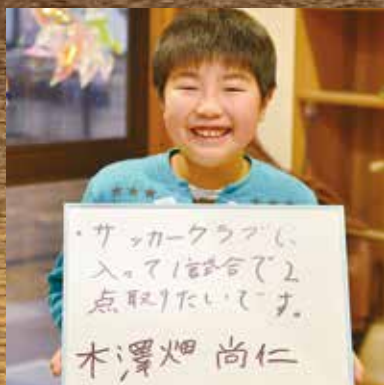 ・サッカークラブに
入って1試合で2
点取りたいです。
木澤畑 尚仁